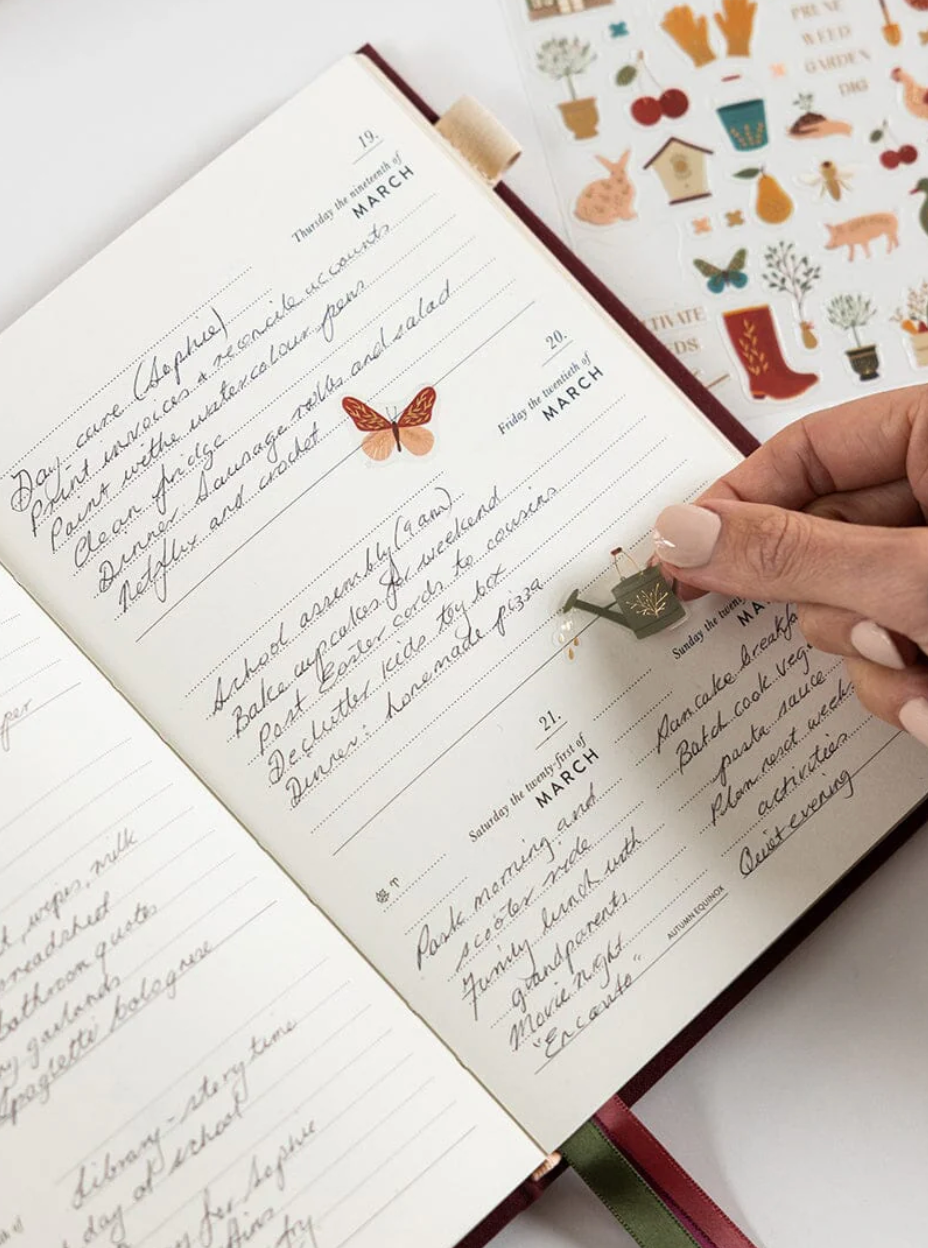 19.
Thursday the nineteenth of
MARCH
Day care (Sophie)
Print invoices & reconcile accounts
Paint with watercolour pens
Clean fridge
Dinner: Sausage rolls and salad
Netflix and crochet
20.
Friday the twentieth of
MARCH
School assembly (9am)
Bake cupcakes for weekend
Post Easter cards to cousins
Declutter kids toy box
Dinner: homemade pizza
21.
Saturday the twenty-first of
MARCH
Park morning and
scooter ride
Family lunch with
grandparents
Movie night
"Encanto"
AUTUMN EQUINOX
Sunday the
Pancake
Batch cook
pasta sauce
Plan next week
activities
Quiet evening
wipes, milk
bathroom quotes
garlands
bolognese
Library - story time
day at school
for Sophie
PRUNE
WEED
GARDEN
DIG